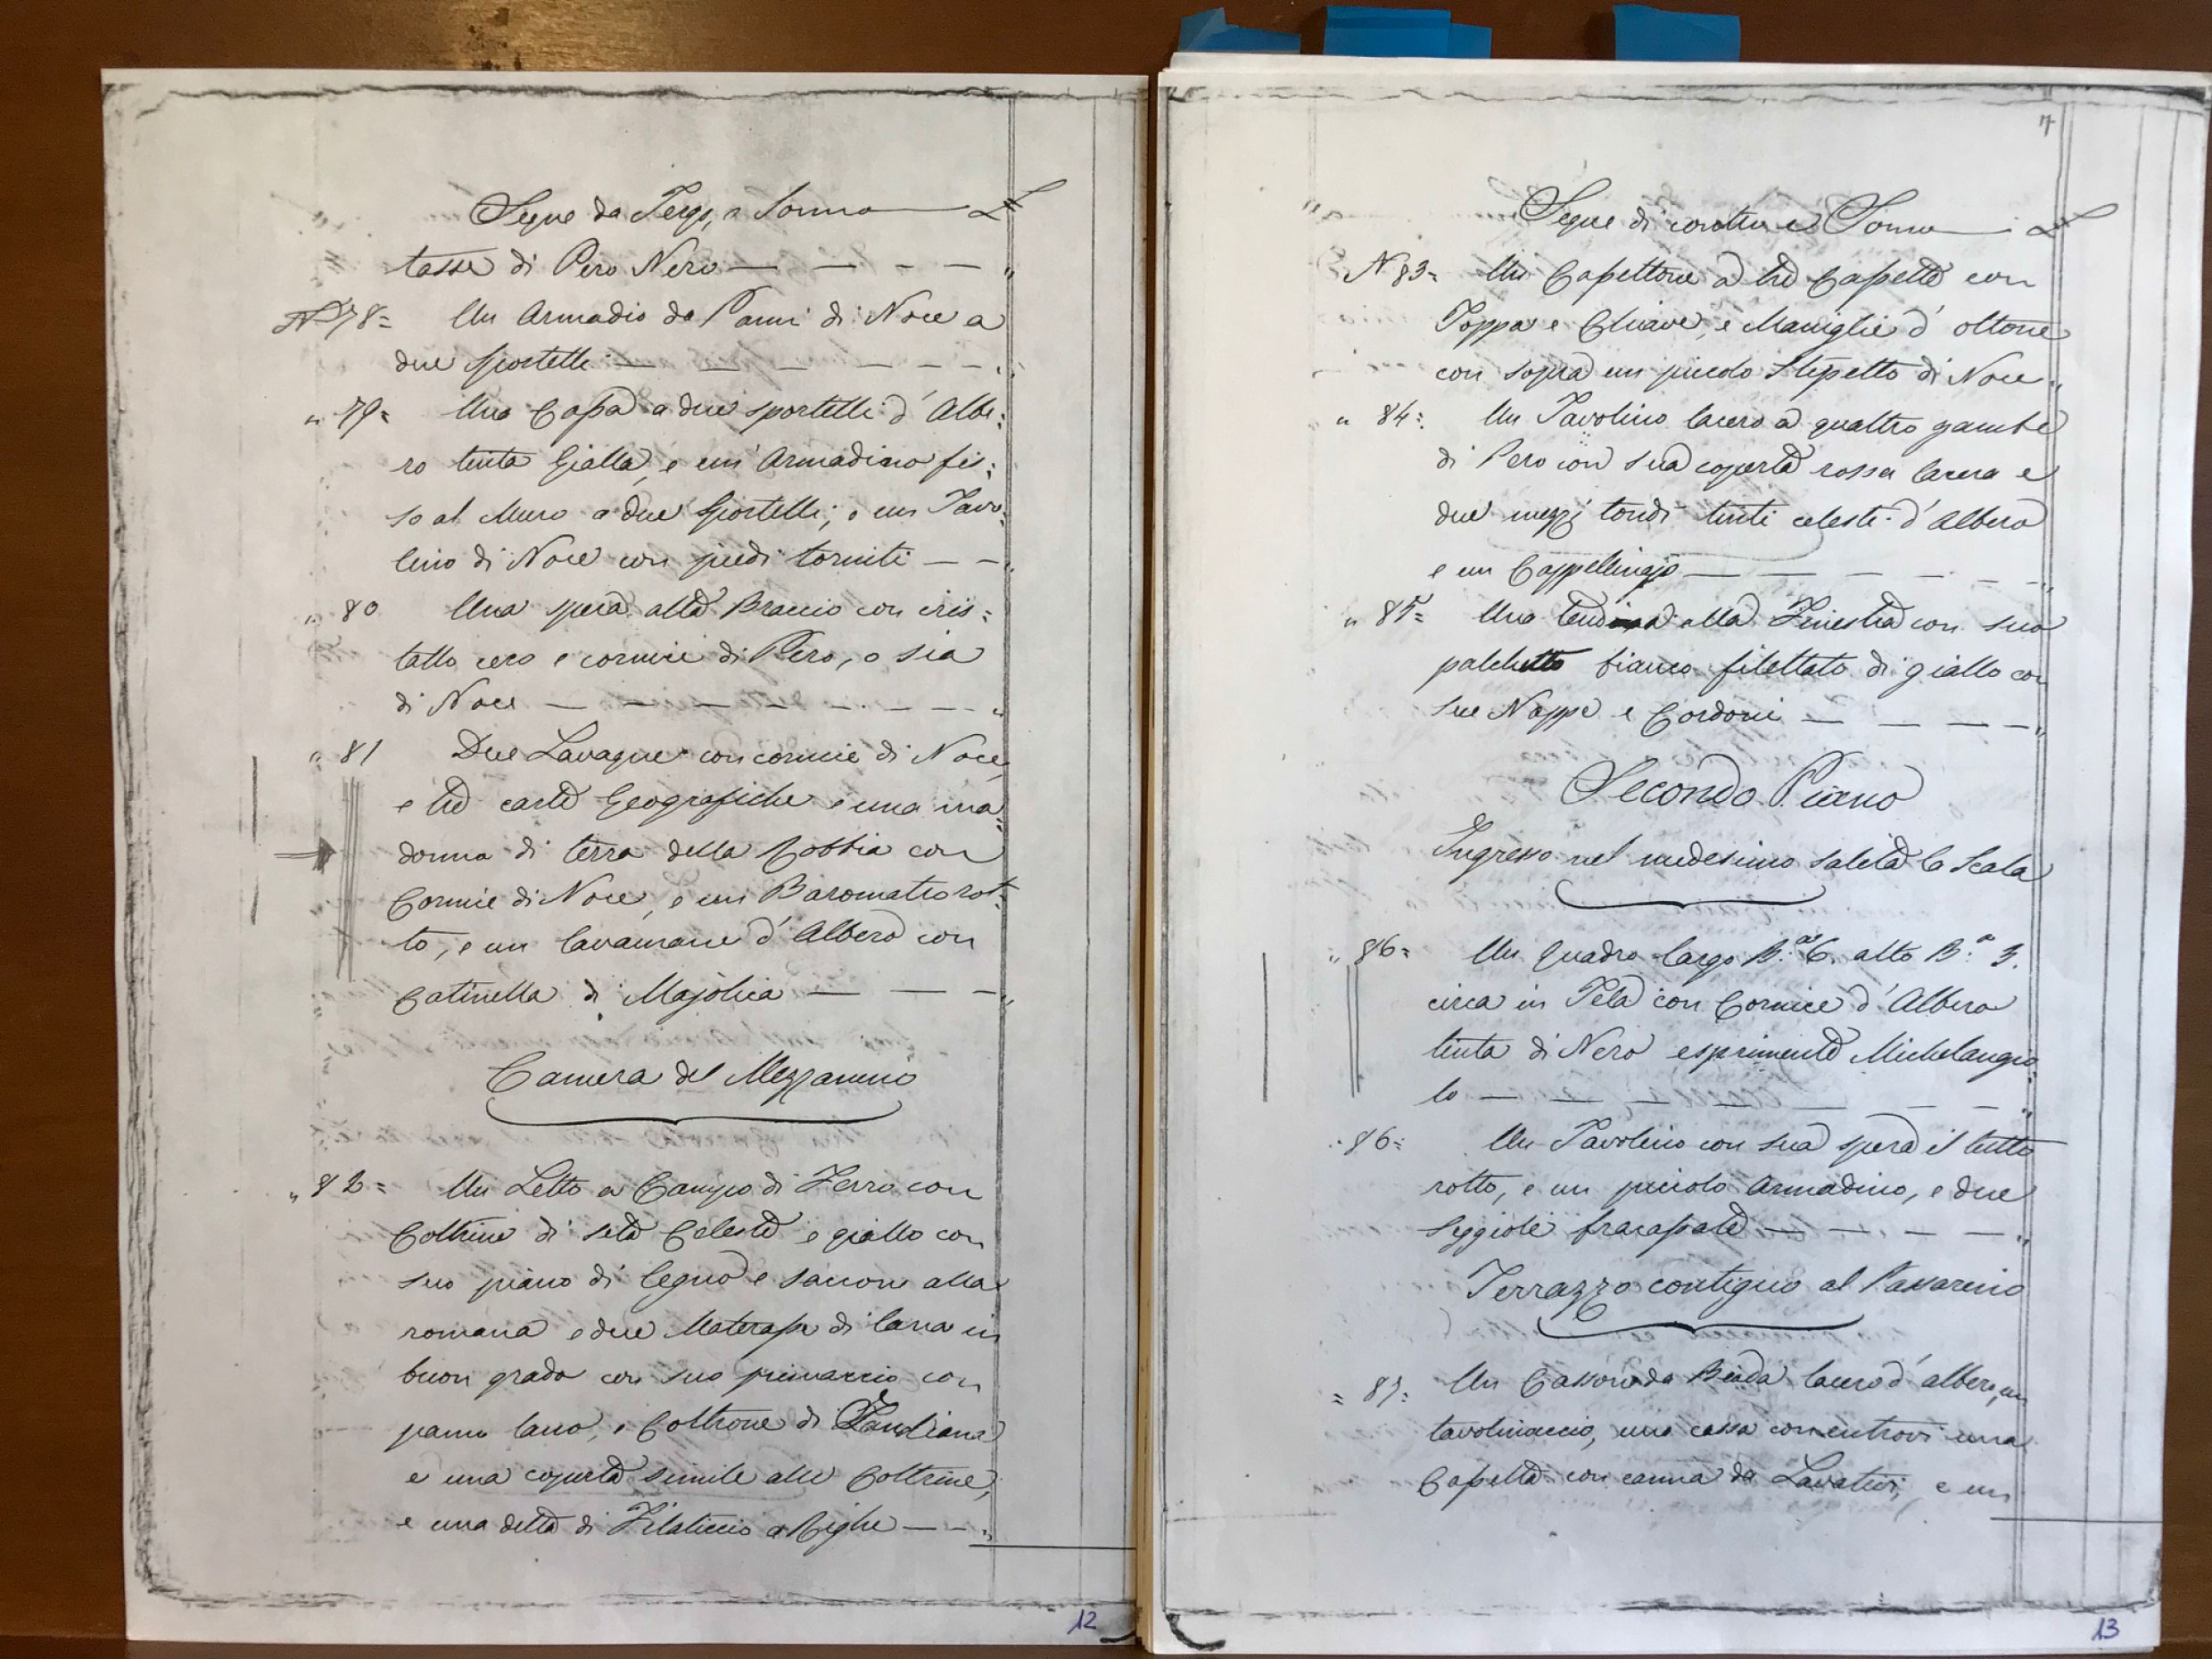 Segue da Tergo, e Somma L
tasse di Pero Nero — — — — "
N 78= Un Armadio da Panni di Noce a
due sportelli — — — — — — "
" 79= Una Cassa a due sportelli d'Albe:
ro tinta Gialla, e un' Armadino fis:
so al Muro a due Sportelli, e un Tavo:
lino di Noce con piedi torniti — — "
" 80 Una spera alta Braccio con cris:
tallo cero e cornice di Pero, o sia
di Noce — — — — — — — — "
" 81 Due Lavagne con cornice di Noce,
e tre carte Geografiche e una ma:
donna di terra della Robbia con
Cornice di Noce, e un Baromatro rot:
to, e un lavamane d'Albero con
Catinella di Majolica — — — "
Camera del Mezzanino
" 82= Un Letto a Campo di Ferro con
Coltrine di seta Celeste e giallo con
suo piano di legno e saccone alla
romana e due Materasse di lana in
buon grado con suo primaccio con
panno lano, e Coltrone di
e una coperta simile alle Coltrine,
e una detta di Filaticcio a Righe — — "
12
7
Segue di contro e Somma L
N 83= Un Cassettone a tre Cassette con
Toppa e Chiave, e Maniglie d'ottone
con sopra un piccolo Stipetto di Noce "
" 84= Un Tavolino lacero a quattro gambe
di Pero con sua coperta rossa lacera e
due mezzi tondi tinti celesti d'Albero
e un Cappellinajo — — — — — — "
" 85= Una tendina alla Finestra con suo
palchetto bianco filettato di giallo con
sue Nappe e Cordoni — — — — "
Secondo Piano
Ingresso nel medesimo salita la Scala
" 86= Un Quadro largo B.a 6. alto B.a 3.
circa in Tela con Cornice d'Albero
tinta di Nero esprimente Michelangio:
lo — — — — — — — "
" 86= Un Tavolino con sua spera il tutto
rotto, e un piccolo Armadino, e due
Seggiole fracassate — — — — "
Terrazzo contiguo al Passarino
= 87= Un Cassone da Biada lacero d'albero, un
tavolinaccio, una cassa con entrovi una
Cassetta con canna da Lavativi, e un
13